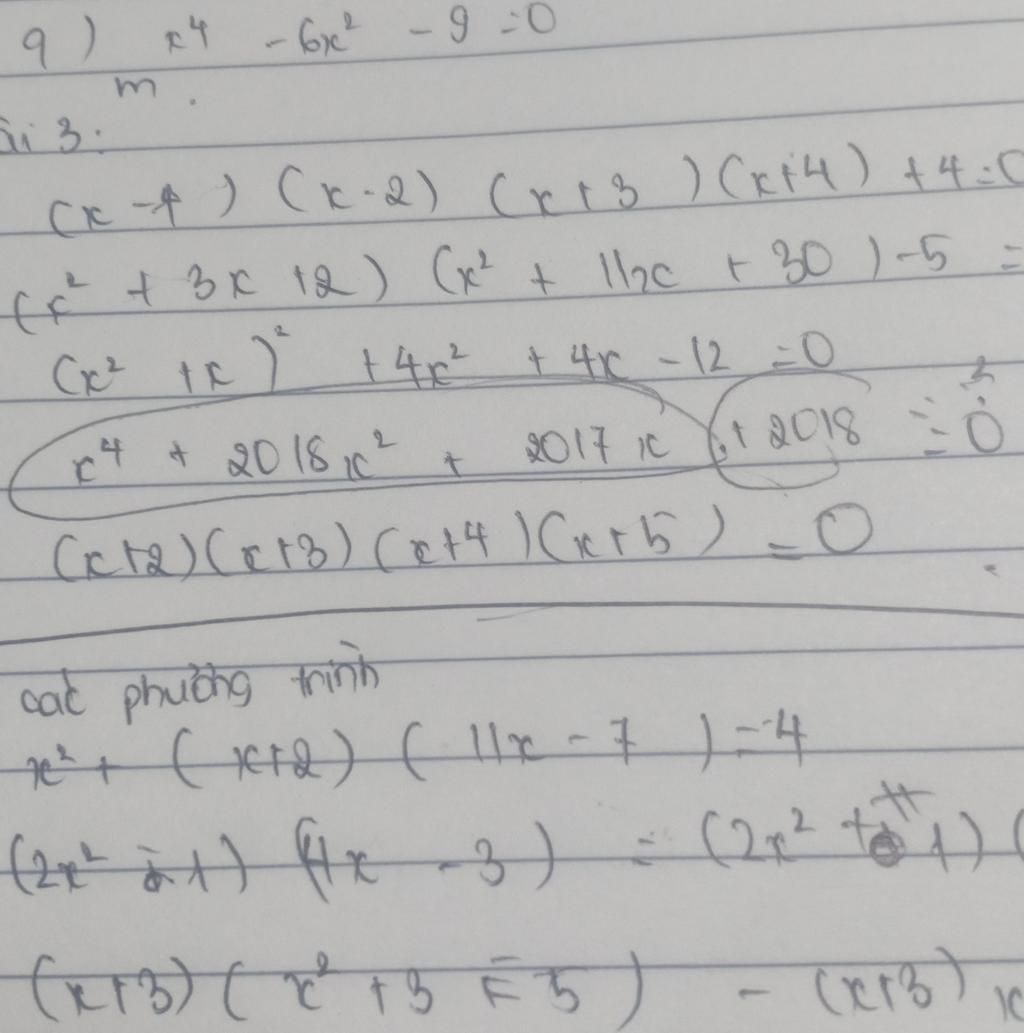 9) x⁴ - 6x² - 9 = 0
m.
ài 3:
(x - 1) (x - 2) (x + 3) (x + 4) + 4 = 0
(x² + 3x + 2) (x² + 11x + 30) - 5 =
(x² + x)² + 4x² + 4x - 12 = 0
x⁴ + 2018x² + 2017x + 2018 = 0
(x+2)(x+3)(x+4)(x+5) = 0
các phường trình
x² + (x+2) (11x - 7) = 4
(2x² + 1) (4x - 3) = (2x² + 1) (
(x+3) (x² + 3 - 5) - (x+3) x